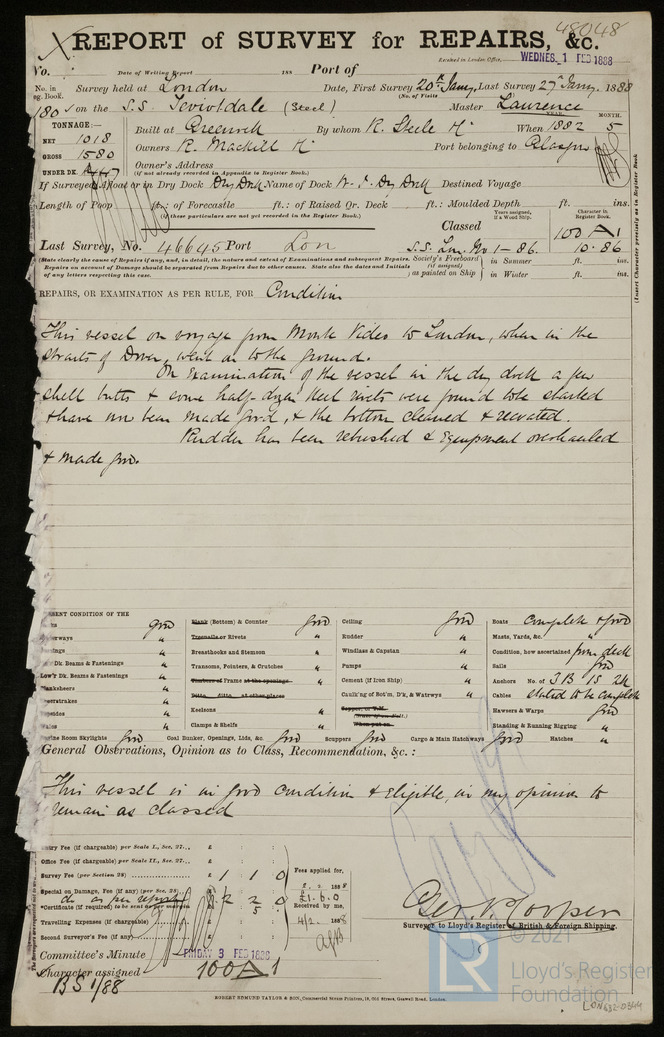 48048
REPORT of SURVEY for REPAIRS, &c.
Received in London Office, WEDNES. 1 FEB 1888
No. Date of Writing Report 188 Port of
No. in Survey held at London Date, First Survey 20th Jany, Last Survey 27th Jany. 1888
eg. Book. (No. of Visits )
180 on the S.S. Teviotdale (Steel) Master Lawrence
TONNAGE:— YEAR. MONTH.
NET 1018 Built at Greenock By whom R. Steele When 1882 5
GROSS 1580 Owners R. Mackill Port belonging to Glasgow
UNDER DK. 1447 Owner's Address
(if not already recorded in Appendix to Register Book.)
If Surveyed Afloat or in Dry Dock Dry Dock Name of Dock Dry Dock Destined Voyage
Length of Poop ft.: of Forecastle ft.: of Raised Qr. Deck ft.: Moulded Depth ft. ins.
(if these particulars are not yet recorded in the Register Book.)
Classed Years assigned, if a Wood Ship. Character in Register Book.
100 A 1
Last Survey, No. 46645 Port Lon S.S. Lon. No 1 - 86. 10.86
(State clearly the Cause of Repairs, if any, and, in detail, the nature and extent of Examinations and subsequent Repairs.
Repairs on account of Damage should be separated from Repairs due to other causes. State also the dates and Initials
of any letters respecting this case.
Society's Freeboard (if assigned) as painted on Ship in Summer ft. ins.
in Winter ft. ins.
(Insert Character precisely as in Register Book
REPAIRS, OR EXAMINATION AS PER RULE, FOR Condition
This vessel on voyage from Monte Video to London, when in the
straits of Dover, went on to the ground.
On Examination of the vessel in the dry dock a few
shell butts & some half-dozen keel rivets were found to be started
& have now been made good, & the bottom cleaned & recoated.
Rudder has been rebushed & Equipment overhauled
& made good.
ENT CONDITION OF THE
good Plank (Bottom) & Counter good Ceiling good Boats complete & good
Treenails or Rivets " Rudder " Masts, Yards, &c. "
Breasthooks and Stemson " Windlass & Capstan " Condition, how ascertained from deck
Dk. Beams & Fastenings " Transoms, Pointers, & Crutches " Pumps " Sails good
Low'r Dk. Beams & Fastenings " Timbers of Frame at the openings " Cement (if Iron Ship) " Anchors No. of 3B 1S 2K
Ditto, ditto, at other places Caulk'ng of Bot'm, D'k, & Watrways " Cables stated to be complete
Keelsons " Hawsers & Warps good
Clamps & Shelfs " Standing & Running Rigging "
Engine Room Skylights good Coal Bunker, Openings, Lids, &c. good Scuppers good Cargo & Main Hatchways good Hatches "
General Observations, Opinion as to Class, Recommendation, &c.:
This vessel is in good condition & Eligible, in my opinion to
remain as classed
Entry Fee (if chargeable) per Scale I., Sec. 27... £ : :
Office Fee (if chargeable) per Scale II., Sec. 27... £ : :
Survey Fee (per Section 28) £ 1 1 0 Fees applied for,
Special on Damage, Fee (if any) (per Sec. 28) 2 2 0 1888
do as per report
*Certificate (if required) to be sent as per margin 5 Received by me,
Travelling Expenses (if chargeable) 4/2 1888
Second Surveyor's Fee (if any)
Geo. R Cooper
Surveyor to Lloyd's Register of British & Foreign Shipping.
Committee's Minute FRIDAY 3 FEB 1888
Character assigned 100 A 1
BS 1/88
ROBERT EDMUND TAYLOR & SON, Commercial Steam Printers, 19, Old Street, Goswell Road, London.
© 2021
Lloyd's Register
Foundation
LON682-0344